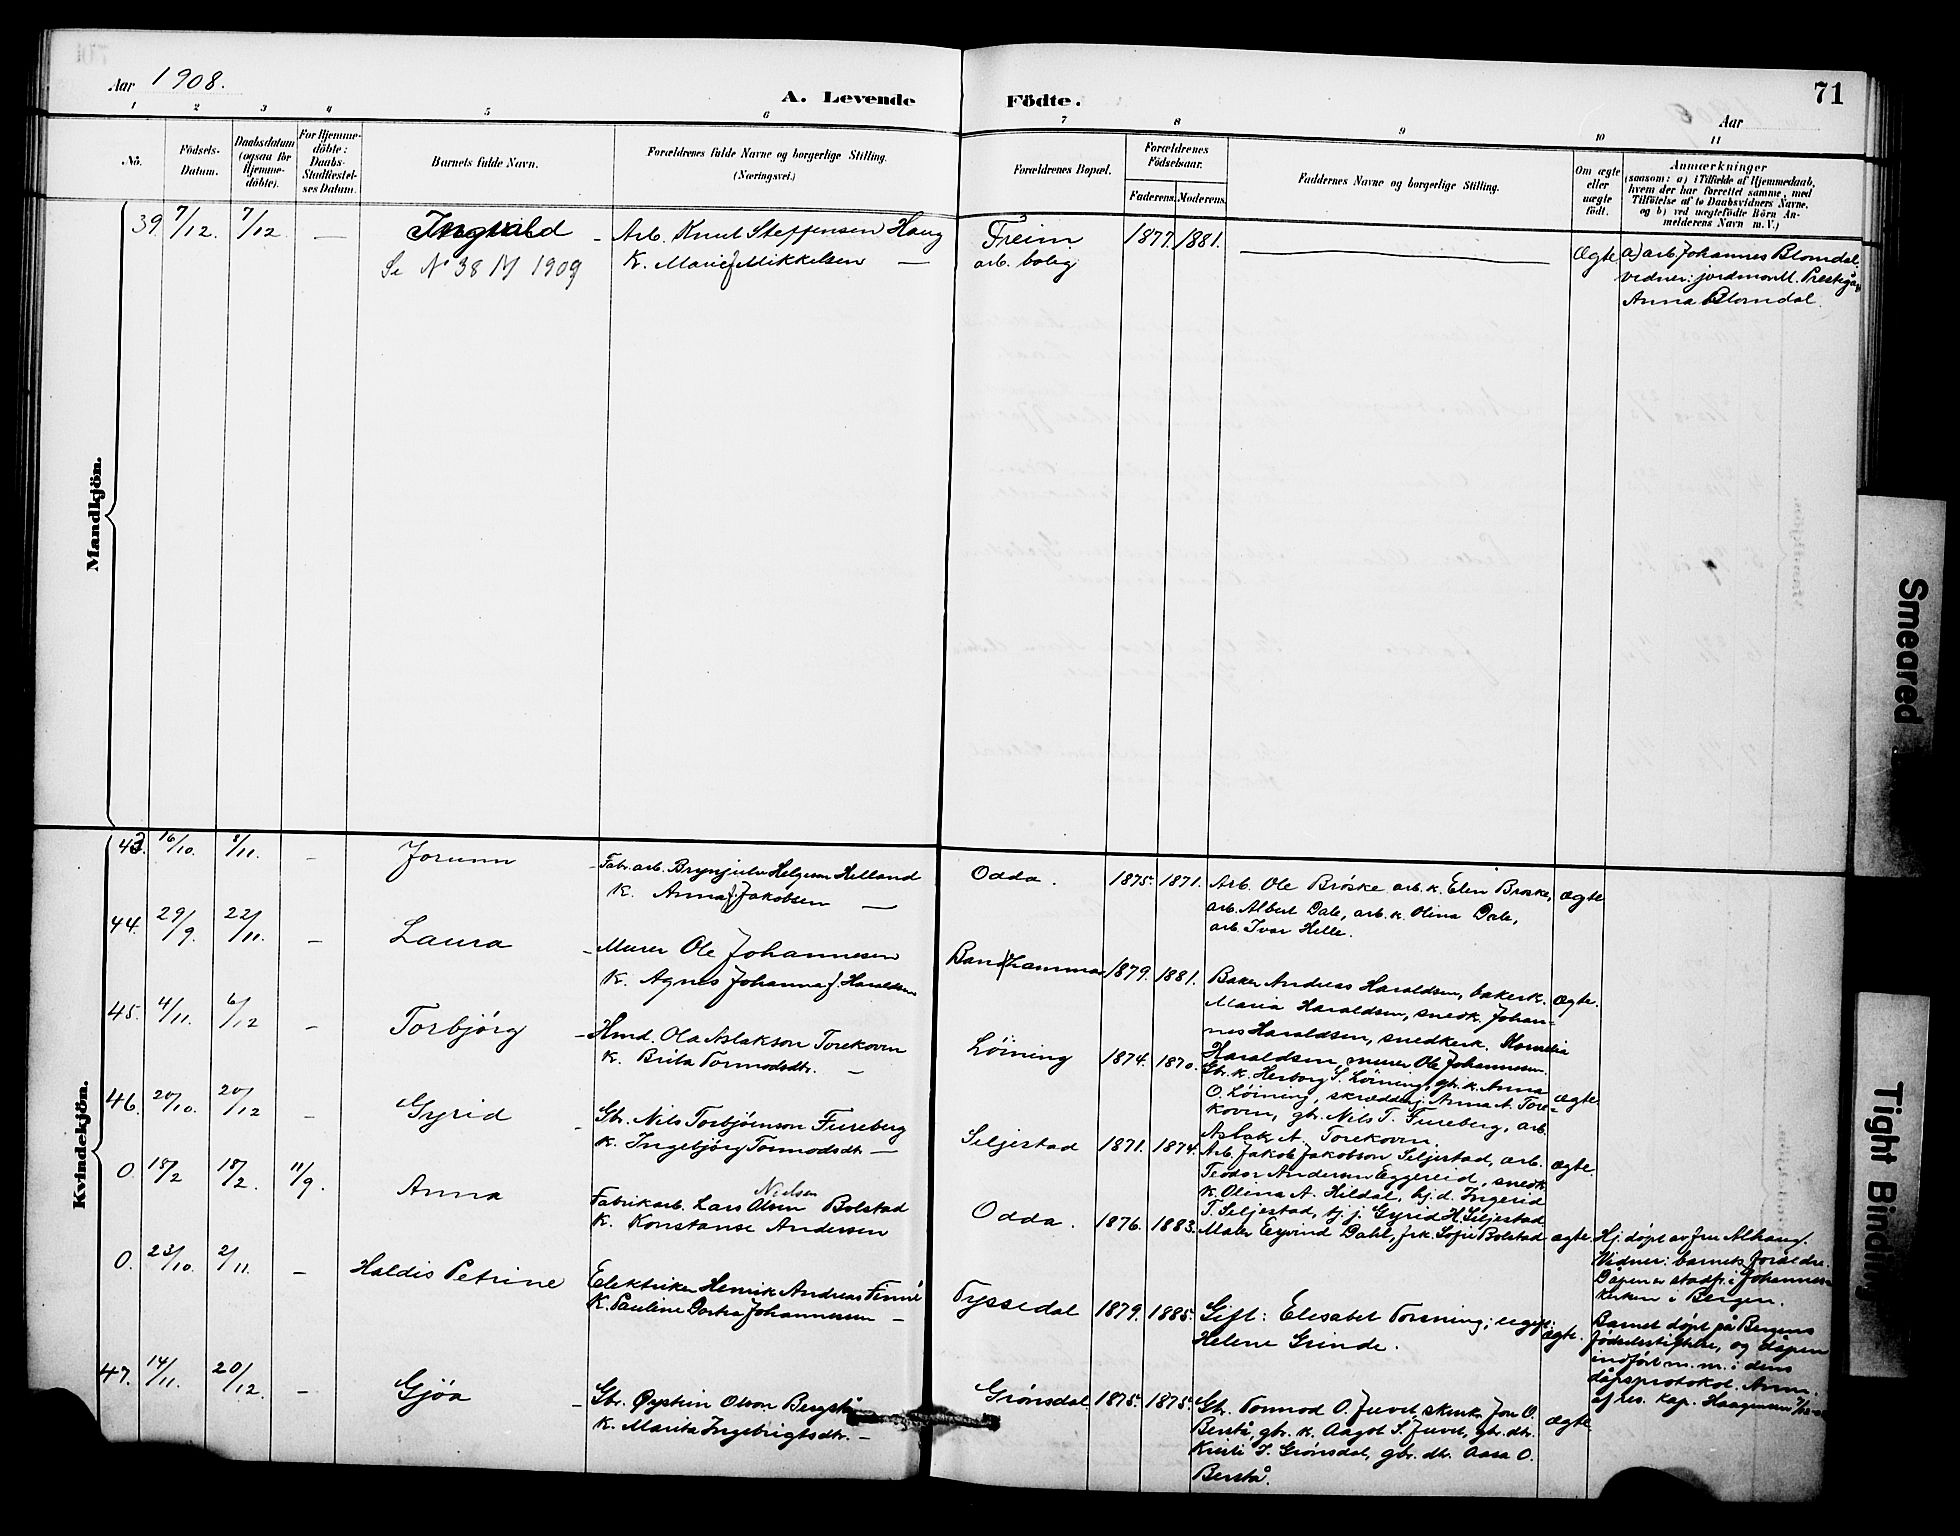 Aar 1908.
A. Levende Födte.
71
Aar
1 2 3 4 5 6 7 8 9 10 11
No.
Födsels-
Datum.
Daabsdatum
(ogsaa for
Hjemme-
döbte).
For Hjemme-
döbte:
Daabs-
Stadfæstel-
ses Datum.
Barnets fulde Navn.
Forældrenes fulde Navne og borgerlige Stilling.
(Næringsvei.)
Forældrenes Bopæl.
Forældrenes
Födselsaar.
Faderens. Moderens.
Faddernes Navne og borgerlige Stilling.
Om ægte
eller
uægte
födt.
Anmærkninger
(saasom: a) i Tilfælde af Hjemmedaab,
hvem der har forrettet samme, med
Tilföielse af to Daabsvidners Navne,
og b) ved uægtefödte Börn An-
melderens Navn m. V.)
Mandkjön.
39 7/12. 7/12 —
Ingvald
Se No 38 M 1909
Arb. Knut Steffensen Haug
K. Marie f. Mikkelsen —
Freim
arb. bolig
1877. 1881.
Ægte
a) arb. Johannes Blomdal
vidner: jordmor M. Prestegå
Anna Blomdal.
Kvindekjön.
43. 16/10. 8/11. —
Jorunn
Fabr.arb. Brynjulv Helgesen Helland
K. Anna f. Jakobsen —
Odda.
1875. 1871.
Arb. Ole Bröske arb. k. Elen Broske,
arb. Albert Dale, arb. k. Olina Dale,
arb. Ivar Helle.
ægte
44. 29/9. 22/11. —
Laura
Murer Ole Johannesen
K. Agnes Johanna f. Haraldsen
Bandhammar
1879. 1881.
Baker Andreas Haraldsen, bakerk.
Maria Haraldsen, snedk. Johan-
nes Haraldsen, snedkerk. Kornelia
Haraldsen, murer Ole Johannesen.
ægte.
45. 4/11. 6/12 —
Torbjörg
Hmd. Ola Aslakson Torekoven
K. Brita Tormodsdtr. —
Löining
1874. 1870.
Gbr. k. Herborg S. Löining, gbr. k. Anna
O. Löining, skrædderj. Anna A. Tore-
koven, gbr. Nils T. Fureberg, arb.
Aslak A. Torekoven.
ægte
46. 20/10. 20/12 —
Gyrid
Gbr. Nils Torbjörnson Fureberg
K. Ingebjörg Tormodsdtr. —
Seljestad
1871. 1874.
Arb. Jakob Jakobson Seljestad, arb.
Teodor Andersen Eggereid, snedk.
k. Olina A. Hildal, hj. d. Ingerid
T. Seljestad, tj. j. Gyrid H. Seljestad
ægte
0. 18/2 18/2. 11/9.
Anna
Nielsen
Fabrikarb. Lars Olsen Bolstad
K. Konstanse Andersen
Odda.
1876. 1883.
Maler Eyvind Dahl, frk. Sofie Bolstad
ægte.
Hj. döpt av fru Alhaug.
Vidner: barnets foraeldre.
Dåpen er stadf. i Johannes-
kirken i Bergen.
0. 23/10. 2/11. —
Haldis Petrine
Elektriker Henrik Andreas Finne
K. Pauline Dortea Johannesen —
Tyssedal
1879. 1885.
Gift: Elesabet Torsning; ugift:
Helene Grinde.
ægte.
Barnet döpt på Bergens
födselsstiftelse, og dåpen
indfört n. m. i dens
dåpsprotokol. Anm.
af res. kap. Haagensen
47. 14/11. 20/12. —
Gjöa
Gbr. Øystein Olson Berstå
K. Marita Ingebrigtsdtr. —
Grönsdal
1875. 1875.
Gbr. Tormod O. Juvet, skenk. Jon O.
Berstå, gbr. k. Aagot S. Juvet, gbr. dtr.
Kristi J. Grönsdal, gbr. dtr. Aasa O.
Berstå.
ægte
Smeared
Tight Binding